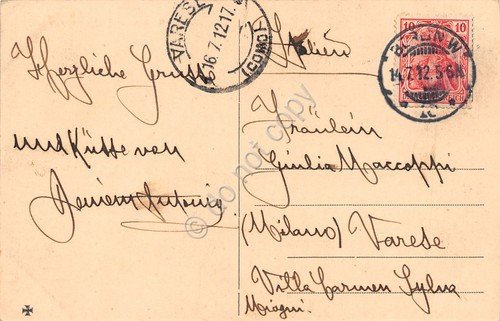 Herzliche Grüsse
und Küsse von
Deinem
VARESE
16.7.12.17
(COMO)
Italien
10 10
BERLIN W
14.7.12.5-6N.
Fräulein
Giulia Maccoppi
(Milano) Varese
Villa Carmen Sylva
do not copy